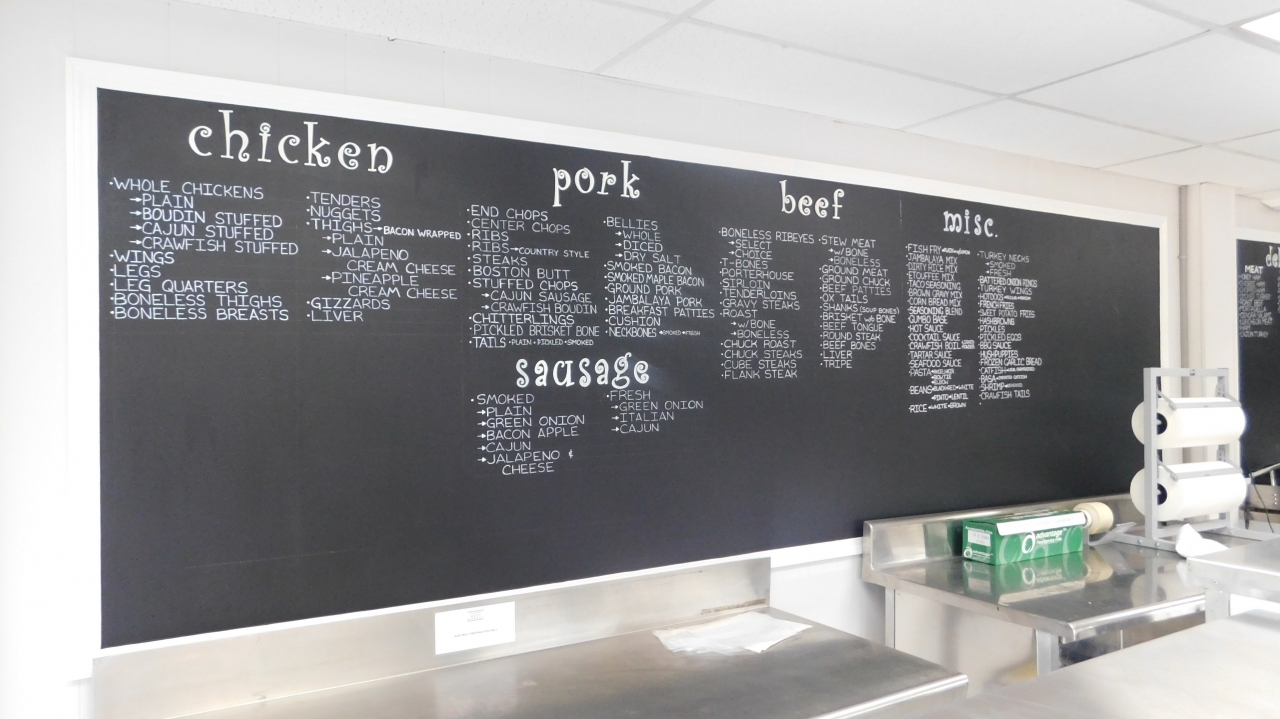 chicken
·WHOLE CHICKENS
→PLAIN
→BOUDIN STUFFED
→CAJUN STUFFED
→CRAWFISH STUFFED
·WINGS
·LEGS
·LEG QUARTERS
·BONELESS THIGHS
·BONELESS BREASTS
·TENDERS
·NUGGETS
·THIGHS→BACON WRAPPED
→PLAIN
→JALAPENO
CREAM CHEESE
→PINEAPPLE
CREAM CHEESE
·GIZZARDS
·LIVER
pork
·END CHOPS
·CENTER CHOPS
·RIBS
·RIBS→COUNTRY STYLE
·STEAKS
·BOSTON BUTT
·STUFFED CHOPS
→CAJUN SAUSAGE
→CRAWFISH BOUDIN
·CHITTERLINGS
·PICKLED BRISKET BONE
·TAILS·PLAIN·PICKLED·SMOKED
·BELLIES
→WHOLE
→DICED
→DRY SALT
·SMOKED BACON
·SMOKED MAPLE BACON
·GROUND PORK
·JAMBALAYA PORK
·BREAKFAST PATTIES
·CUSHION
·NECKBONES·SMOKED·FRESH
sausage
·SMOKED
→PLAIN
→GREEN ONION
→BACON APPLE
→CAJUN
→JALAPENO &
CHEESE
·FRESH
→GREEN ONION
→ITALIAN
→CAJUN
beef
·BONELESS RIBEYES
→SELECT
→CHOICE
·T-BONES
·PORTERHOUSE
·SIRLOIN
·TENDERLOINS
·GRAVY STEAKS
·ROAST
→W/BONE
→BONELESS
·CHUCK ROAST
·CHUCK STEAKS
·CUBE STEAKS
·FLANK STEAK
·STEW MEAT
→W/BONE
→BONELESS
·GROUND MEAT
·GROUND CHUCK
·BEEF PATTIES
·OX TAILS
·SHANKS (SOUP BONES)
·BRISKET w/o BONE
·BEEF TONGUE
·ROUND STEAK
·BEEF BONES
·LIVER
·TRIPE
misc.
·FISH FRY
·JAMBALAYA MIX
·DIRTY RICE MIX
·ETOUFFEE MIX
·TACO SEASONING
·BROWN GRAVY MIX
·CORN BREAD MIX
·SEASONING BLEND
·GUMBO BASE
·HOT SAUCE
·COCKTAIL SAUCE
·CRAWFISH BOIL
·TARTAR SAUCE
·SEAFOOD SAUCE
·PASTA
→BOWTIE
→ELBOW
·BEANS→BLACK→RED→WHITE
→PINTO→LENTIL
·RICE→WHITE→BROWN
·TURKEY NECKS
→SMOKED
→FRESH
·BATTERED ONION RINGS
·TURKEY WINGS
·HOTDOGS
·FRENCH FRIES
·SWEET POTATO FRIES
·HASHBROWNS
·PICKLES
·PICKLED EGGS
·BBQ SAUCE
·HUSHPUPPIES
·FROZEN GARLIC BREAD
·CATFISH
·BASA
·SHRIMP
·CRAWFISH TAILS
MEAT
Advantage